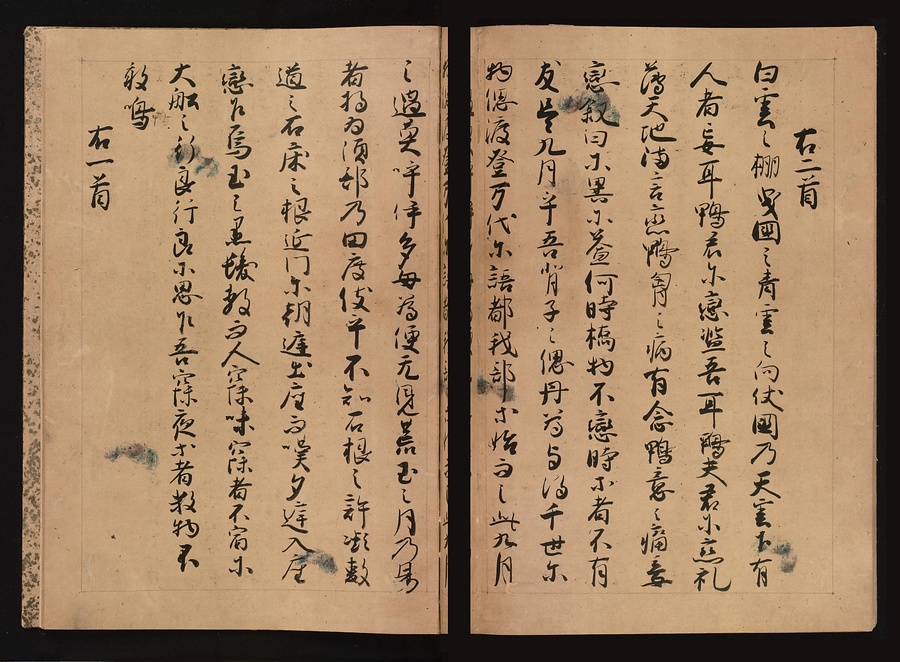 右二首
白雲之棚曳國之青雲之向伏國乃天雲下有
人者妾耳鴨君尓戀濫吾耳鴨夫君尓戀礼
薄天地満言戀鴨胸之病有念鴨意之痛妾
戀叙日尓異尓益何時橋物不戀時等者不有
友是九月乎吾背子之偲丹為与得千世尓
物偲渡登万代尓語都我部等始而之此九月
之過莫呼伊多母為便无見荒玉之月乃易
者将為須部乃田度伎乎不知石根之許凝敷
道之石床之根延門尓朝庭出座而嘆夕庭入座
戀乍烏玉之黒髪敷而人寐味寐者不宿尓
大船之行良行良尓思乍吾寐夜等者數物不
敢鳴
右一首